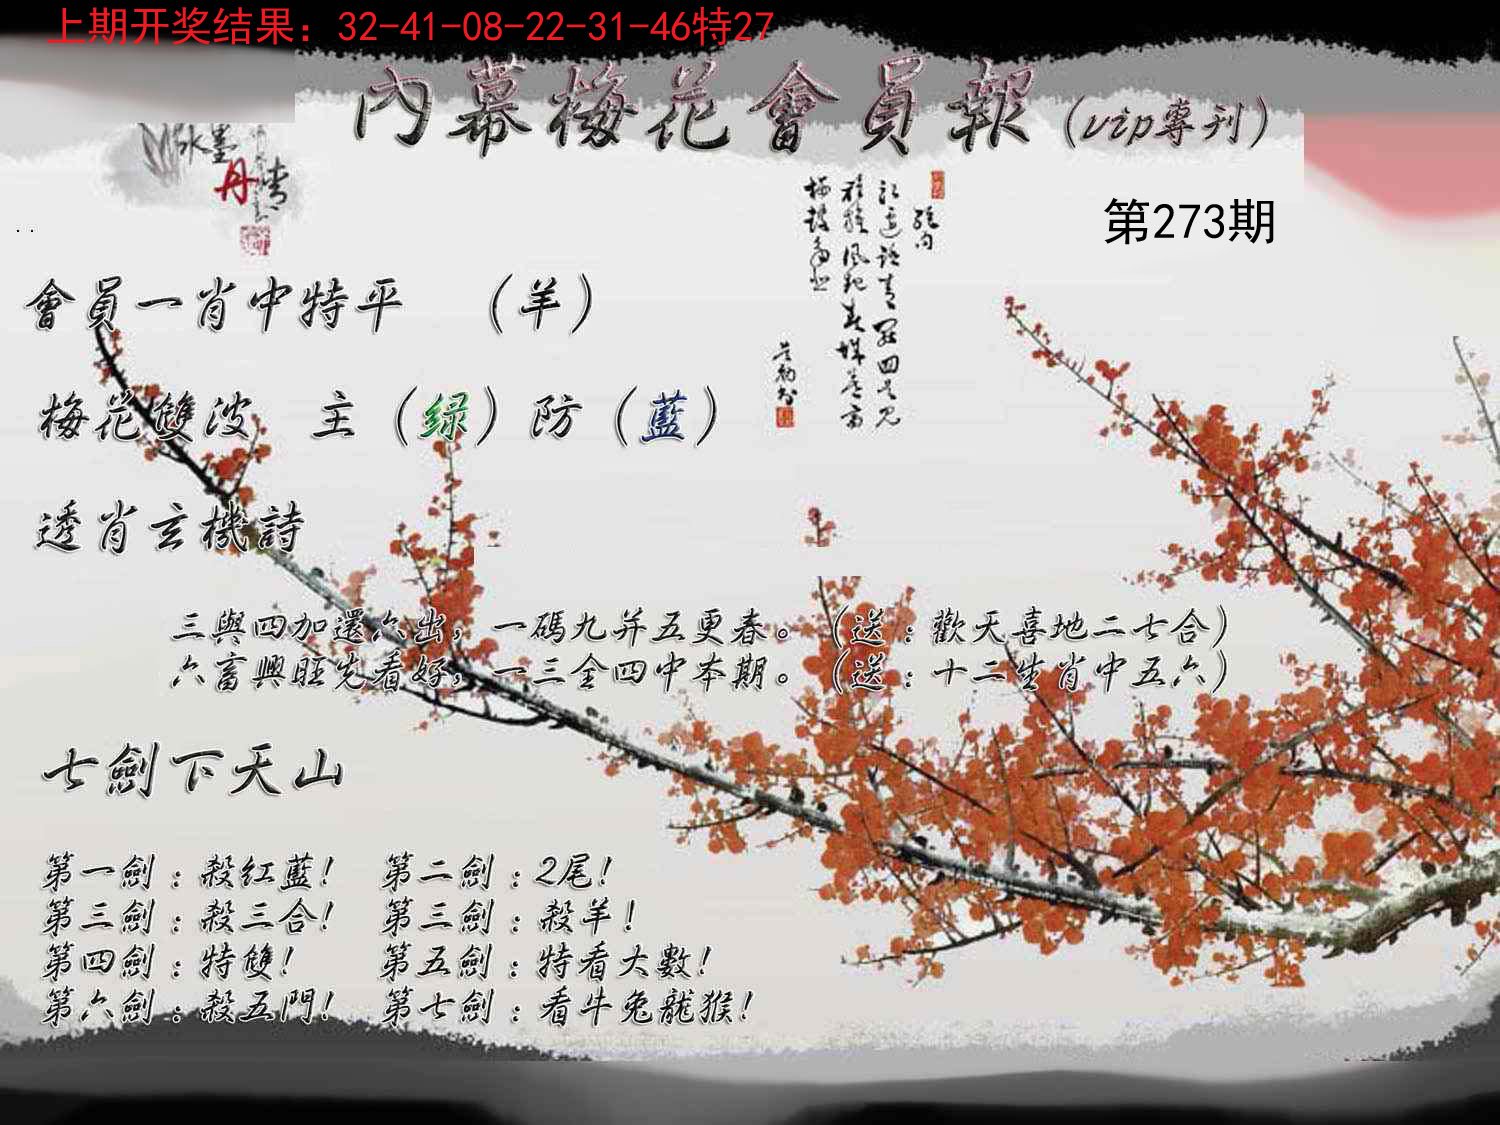 上期开奖结果：32-41-08-22-31-46特27
內幕梅花會員報（vip專刊）
水墨
丹青
第273期
會員一肖中特平 （羊）
梅花雙波 主（绿）防（藍）
透肖玄機詩
三與四加還六出，一碼九并五更春。（送：歡天喜地二七合）
六畜興旺先看好，一三全四中本期。（送：十二生肖中五六）
七劍下天山
第一劍：殺紅藍！ 第二劍：2尾！
第三劍：殺三合！ 第三劍：殺羊！
第四劍：特雙！ 第五劍：特看大數！
第六劍：殺五門！ 第七劍：看牛兔龍猴！